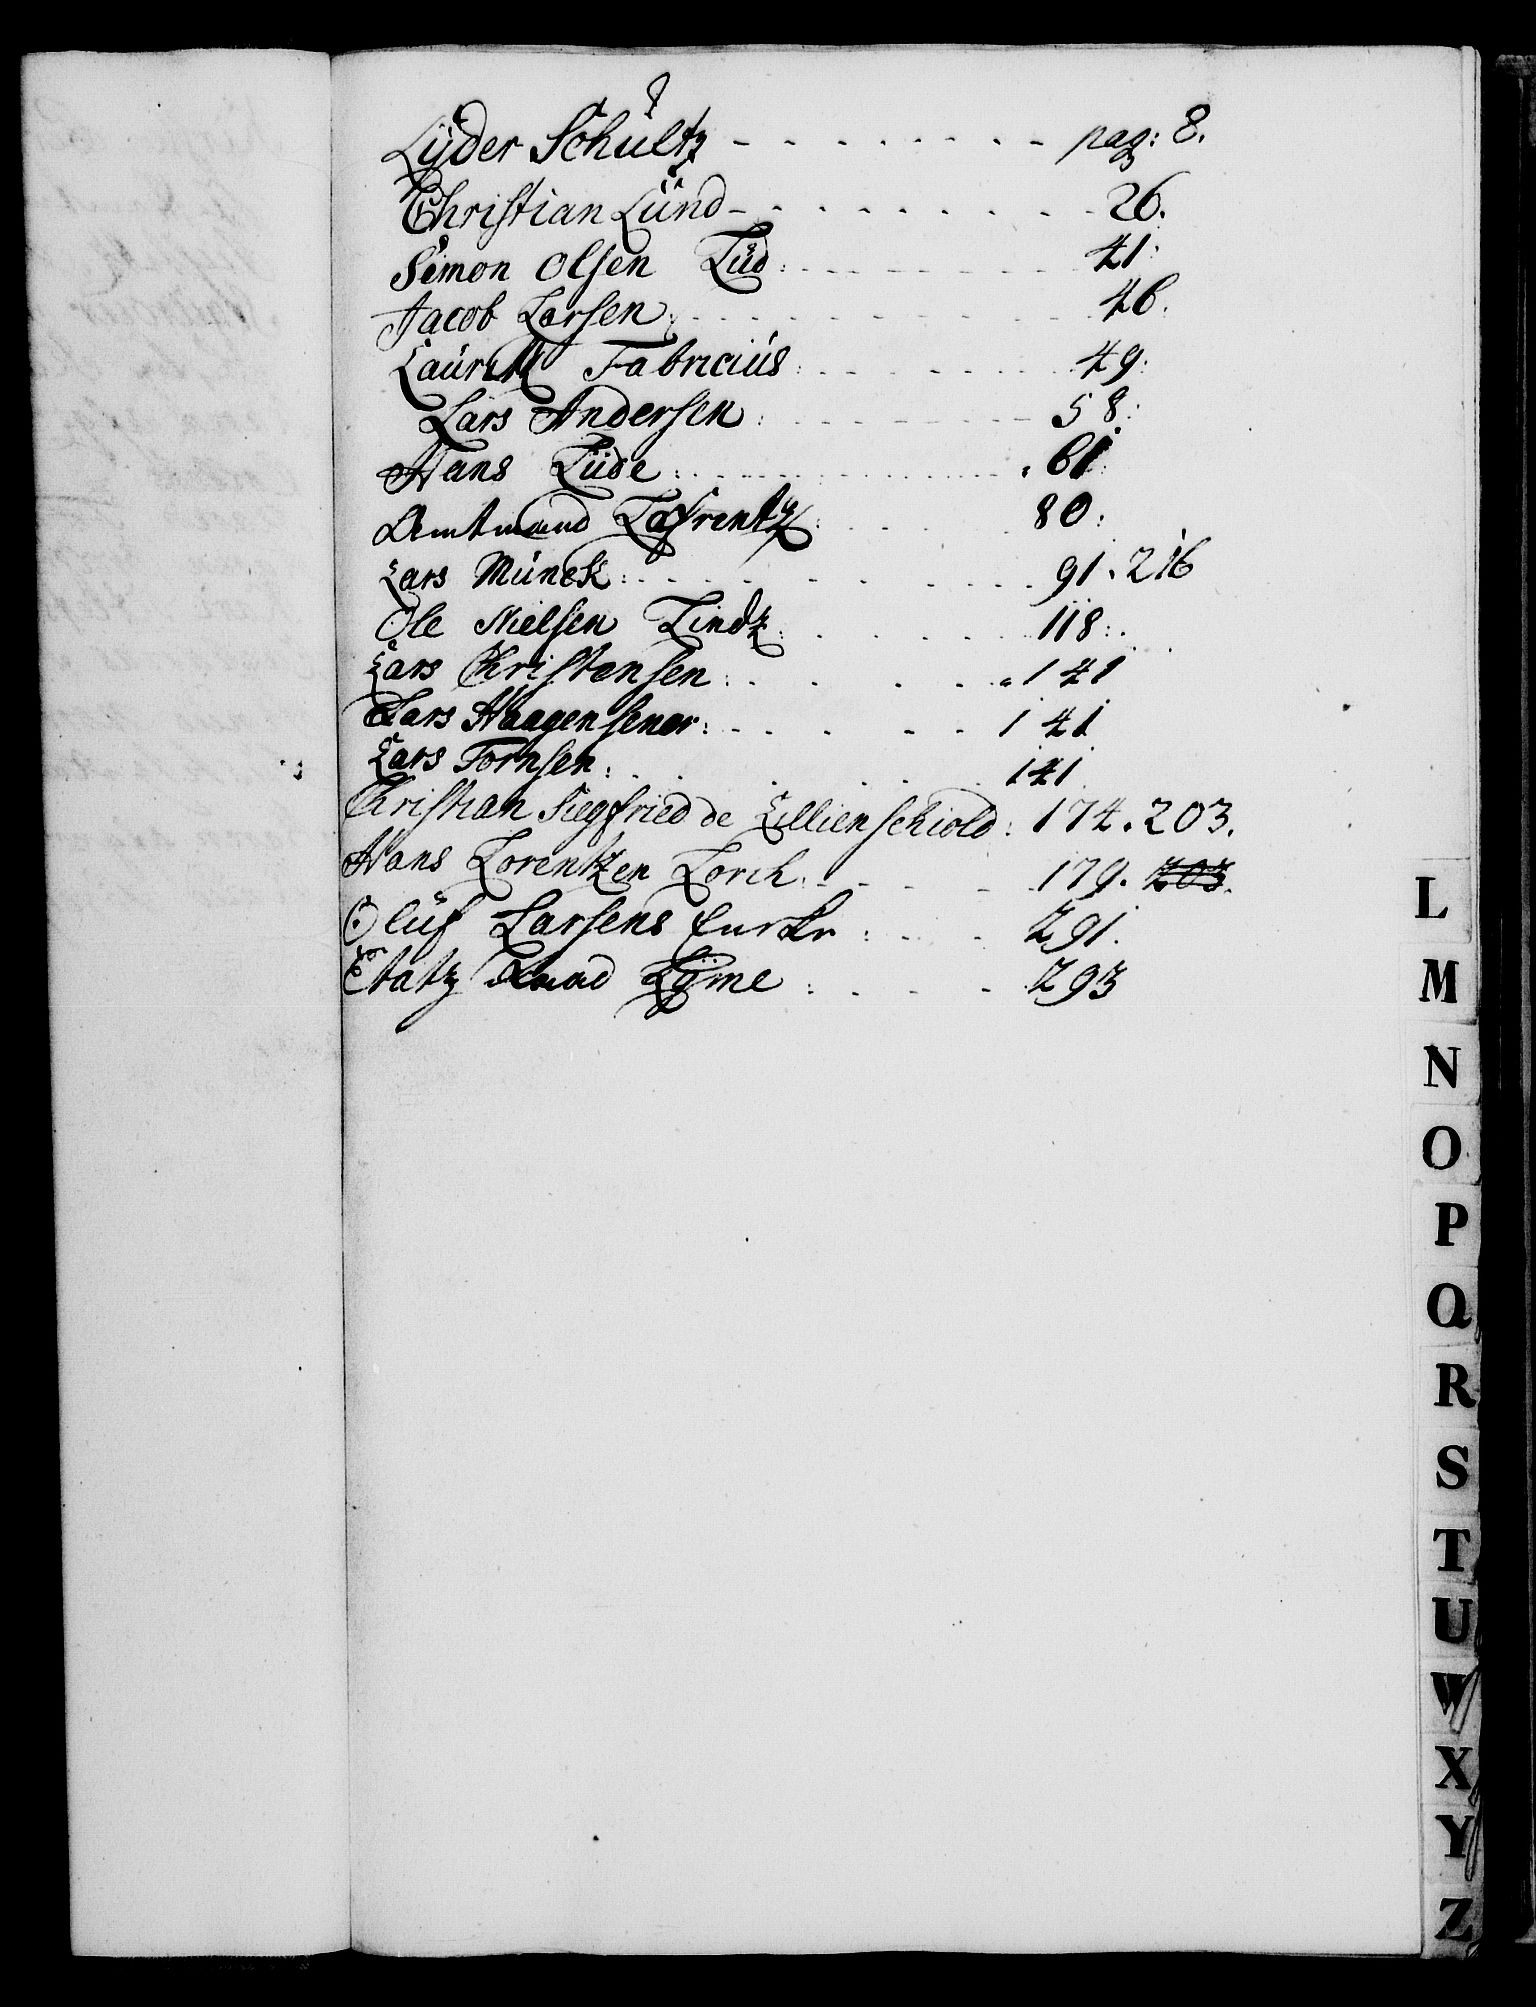 Lÿder Schultz - - - - - - - - pag: 8.
Christian Lund - - - - - - - - 26.
Simon Olsen Lud: - - - - - - - 41:
Jacob Larsen: - - - - - - - 46.
Lauritz Fabricius: - - - - - - 49:
Lars Andersen: - - - - - - - 58:
Hans Lude: - - - - - - - - 61:
Amtmand Lafrentz: - - - - 80:
Lars Munck: - - - - - - - 91. 216
Ole Nielsen Lindt: - - - - - 118:
Lars Christensen: - - - - - 141
Lars Haagensener: - - - - - 141
Lars Tornsen: - - - - - 141
Christian Siegfried de Lillienschiold: 174. 203.
Hans Lorentzen Lorch: - - - - 179. 203.
Oluf Larsens Enke: - - - 291.
Etatz Raad Lÿme: - - - - 293
L
M
N
O
P
Q
R
S
T
U
W
X
Y
Z